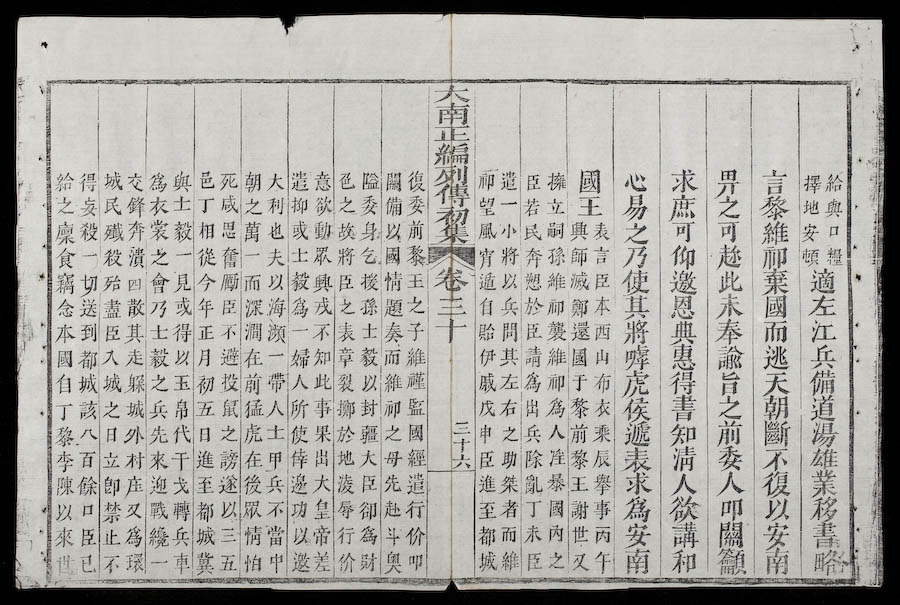 給與口糧
擇地安頓
適左江兵備道湯雄業移書略
言黎維祁棄國而逃天朝斷不復以安南
畀之可趁此未奉諭旨之前委人叩關籲
求庶可仰邀恩典惠得書知淸人欲講和
心易之乃使其將嘑虎侯遞表求爲安南
國王
表言臣本西山布衣乘辰舉事丙午
興師滅鄭還國于黎前黎王謝世又
擁立嗣孫維祁襲維祁爲人淫暴國內之
臣若民奔愬於臣請爲出兵除亂丁未臣
遣一小將以兵問其左右之助桀者而維
祁望風宵遁自貽伊戚戊申臣進至都城
大南正編列傳初集 卷三十 三十六
復委前黎王之子維𧫴監國經遣行价叩
關備以國情題奏而維祁之母先赴斗奧
隘委身乞援孫士毅以封疆大臣卻爲財
色之故將臣之表章裂擲於地淩辱行价
意欲動眾興戎不知此事果出大皇帝差
遣抑或士毅爲一婦人所使倖邊功以邀
大利也夫以海濒一帶人士甲兵不當中
朝之萬一而深澗在前猛虎在後眾情怕
死咸思奮勵臣不避投鼠之謗遂以三五
邑丁相從今年正月初五日進至都城冀
與士毅一見或得以玉帛代干戈轉兵車
爲衣裳之會乃士毅之兵先來迎戰纔一
交鋒奔潰四散其走躲城外村庄又爲環
城民殲殺殆盡臣入城之日立卽禁止不
得妄殺一切送到都城該八百餘口臣已
給之廩食竊念本國自丁黎李陳以來世